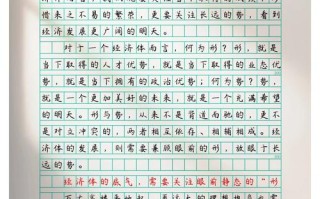 惜来之不易的繁荣，更要关注长远的势，看到
经济发展更广阔的明天。
对于一个经济体而言，何为形？形，就是
当下取得的人才优势，就是当下取得的业态优
势，就是当下拥有的政治优势；何为势？势，
就是一个更加美好的未来，就是一个充满希望
的明天。形与势，从来不是背道而驰的，更不
是对立冲突的，两者相互依存、相辅相成。经
济体的发展，则需要兼顾眼前的形，放眼于长
远的势。
经济体的底气，需要关注眼前静态的“形